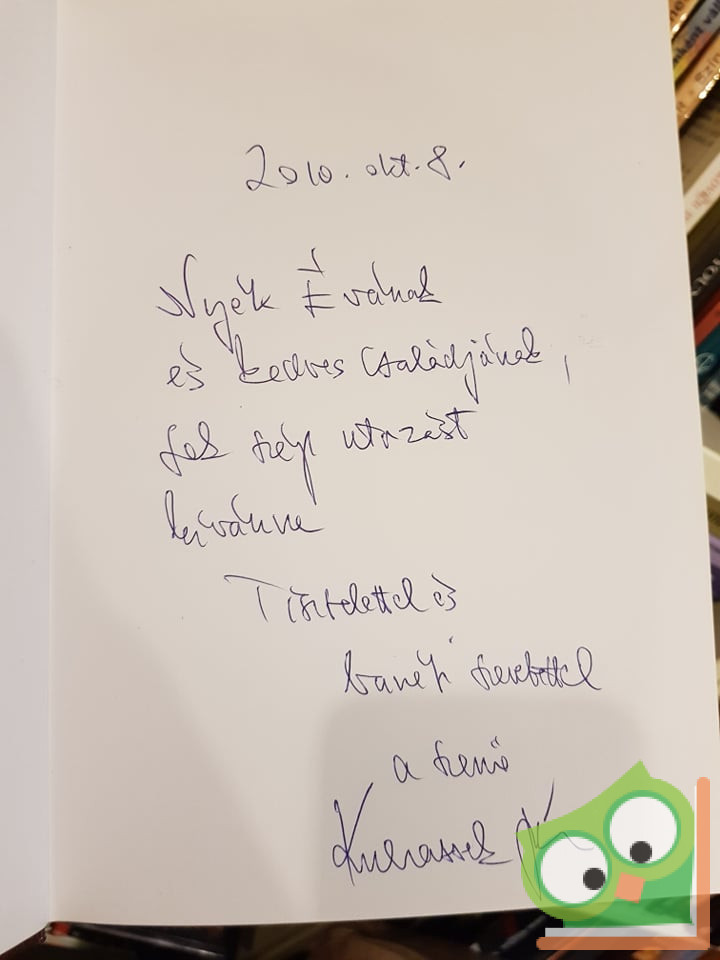 2010. okt. 8.
Nyék Évának
és kedves Családjának,
sok szép utazást
kívánva
Tisztelettel és
baráti szeretettel
a szerző